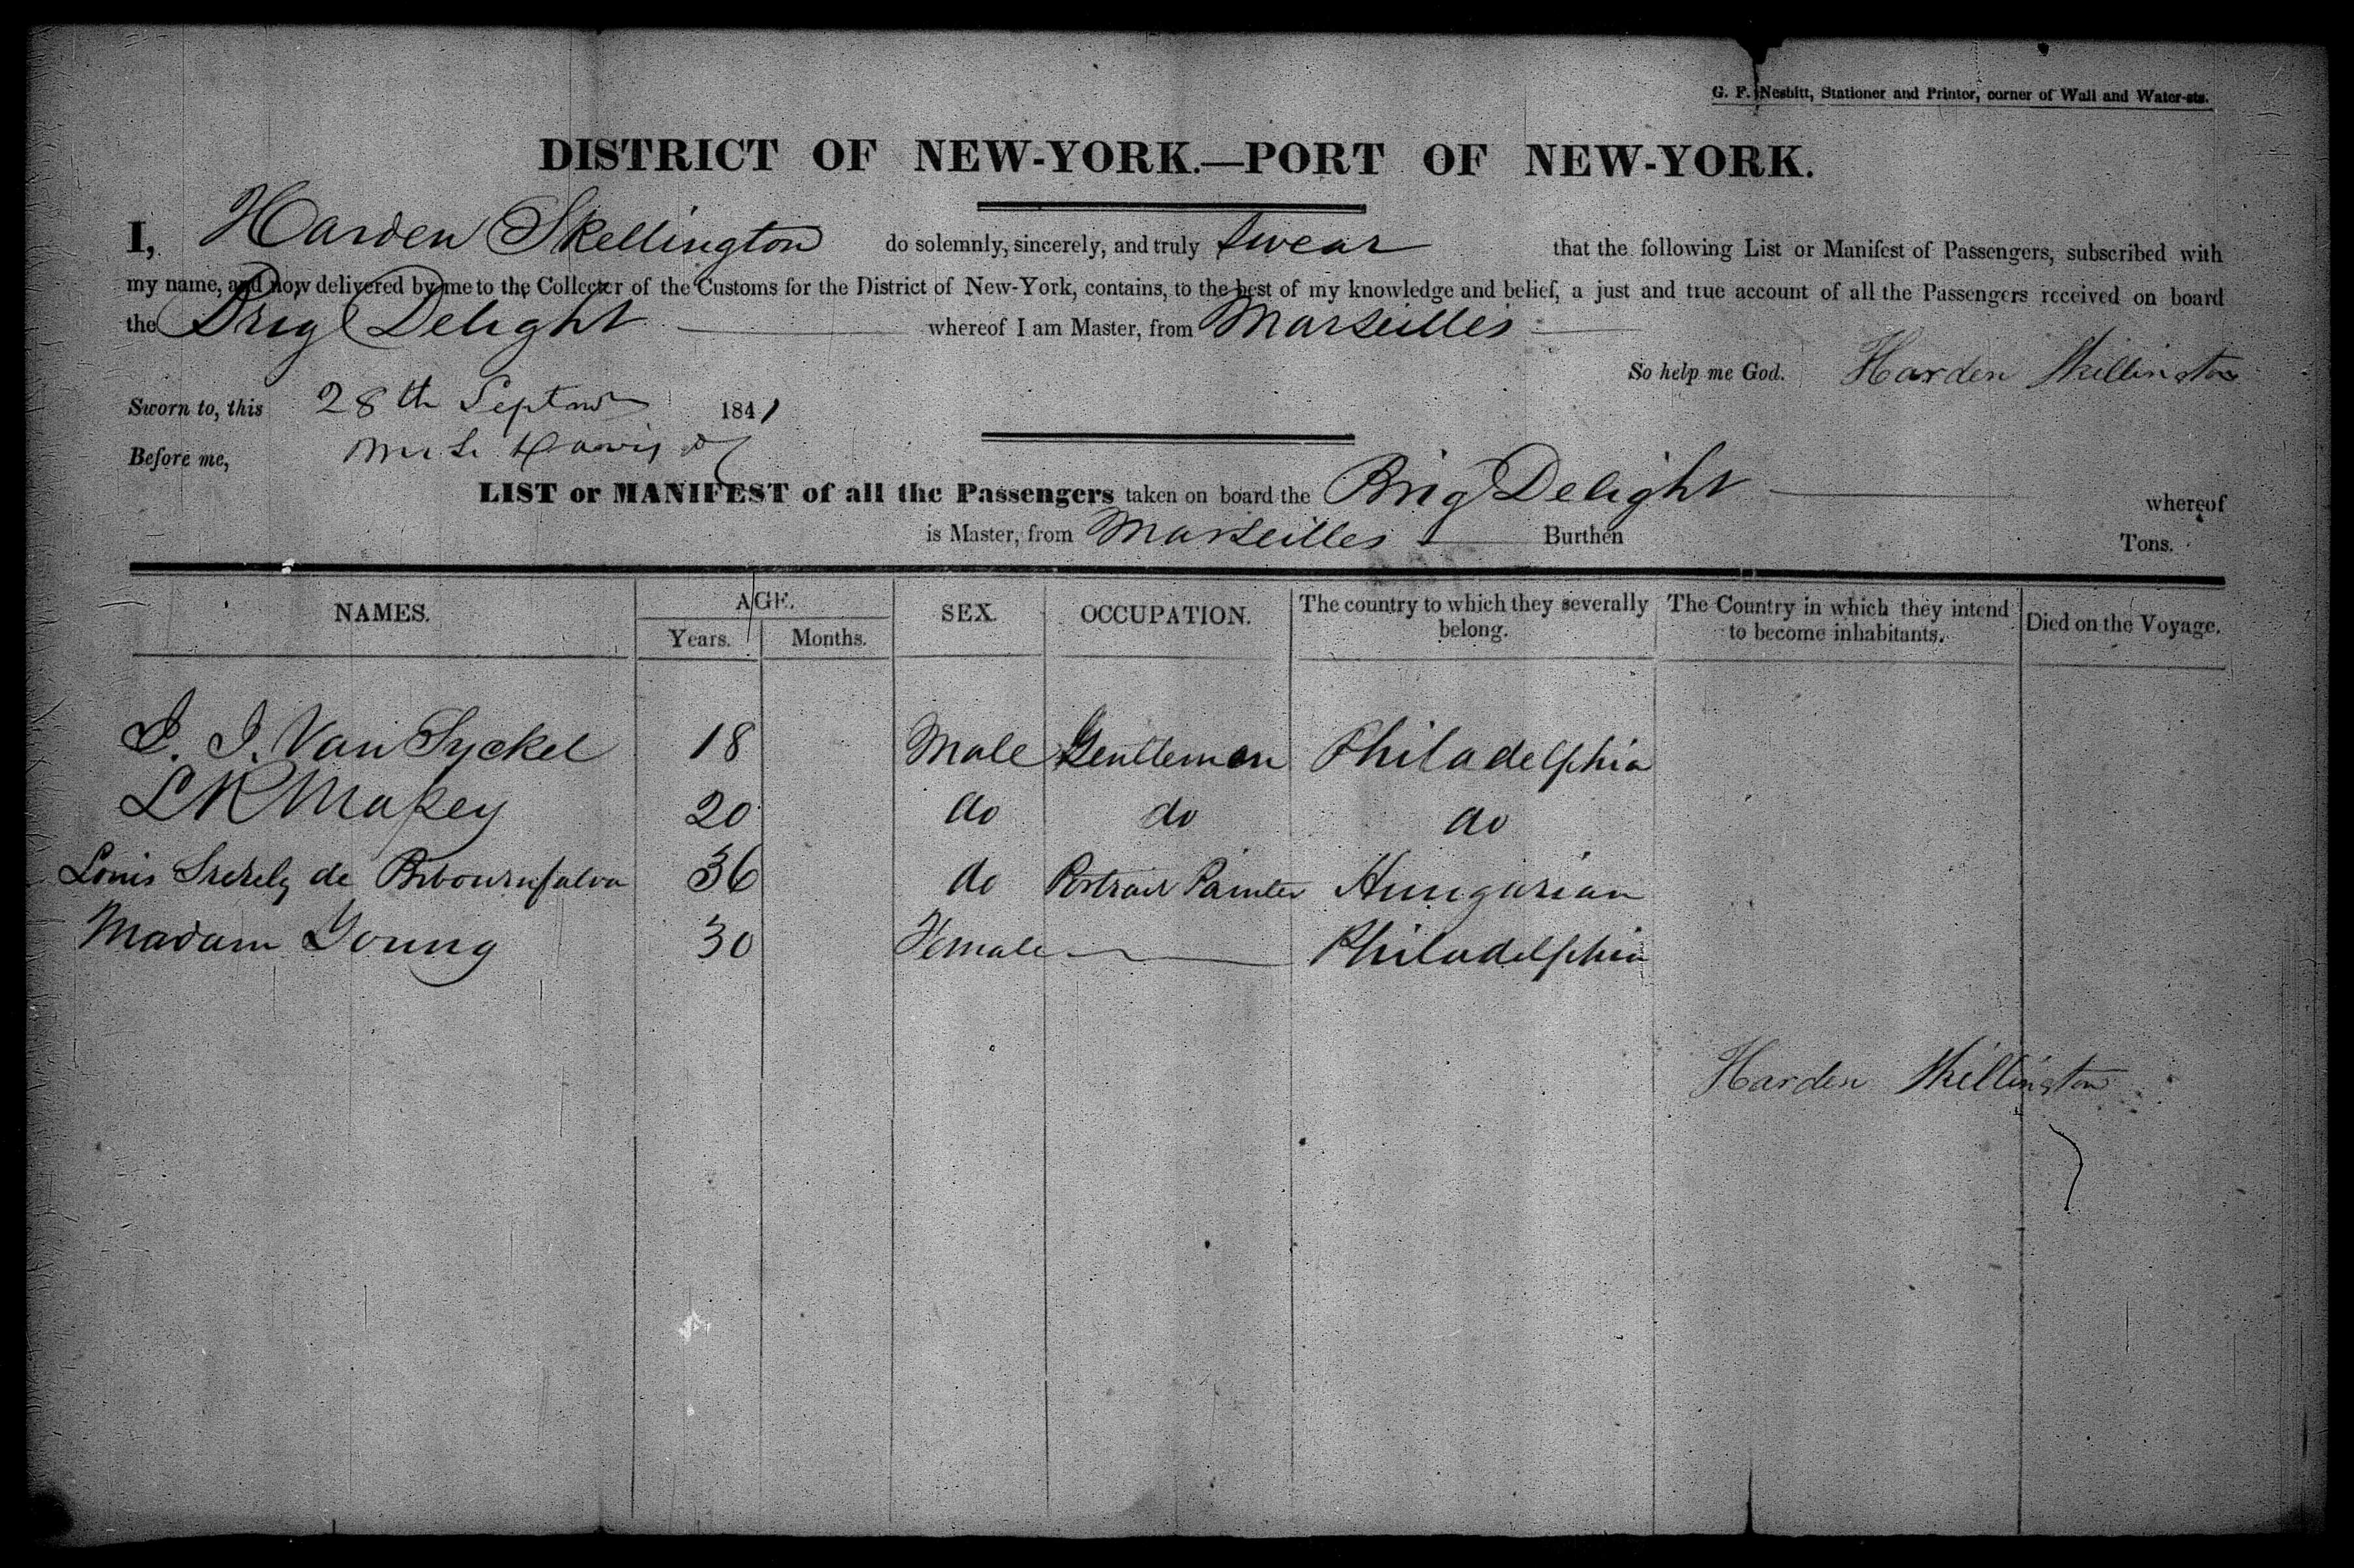 G. F. Nesbitt, Stationer and Printer, corner of Wall and Water-sts.
DISTRICT OF NEW-YORK.—PORT OF NEW-YORK.
I, Harden Skellington do solemnly, sincerely, and truly swear that the following List or Manifest of Passengers, subscribed with
my name, and now delivered by me to the Collecter of the Customs for the District of New-York, contains, to the best of my knowledge and belief, a just and true account of all the Passengers received on board
the Brig Delight whereof I am Master, from Marseilles
So help me God. Harden Skillington
Sworn to, this 28th 1841
Before me,
LIST or MANIFEST of all the Passengers taken on board the Brig Delight whereof
is Master, from Marseilles Burthen Tons.
NAMES. AGE. SEX. OCCUPATION. The country to which they severally belong. The Country in which they intend to become inhabitants. Died on the Voyage.
Years. Months.
I. I. Van Syckel 18 Male Gentleman Philadelphia
20 do do do
Louis de 36 do Portrait Painter Hungarian
Madam Young 30 Female Philadelphia
Harden Skillington